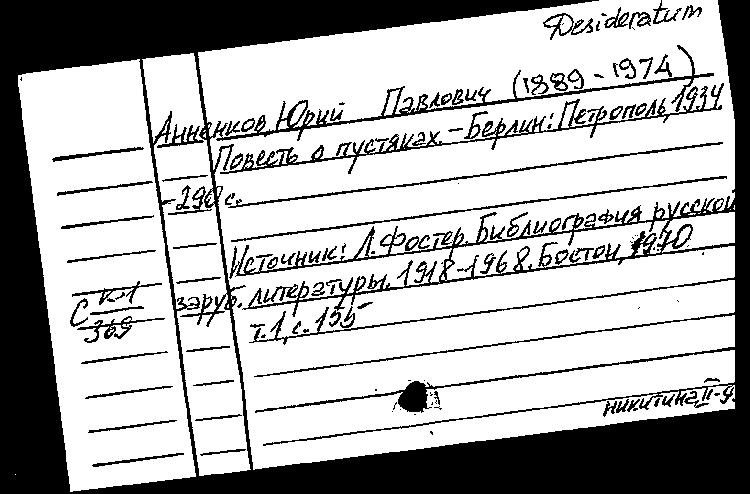 Desideratum
Анненков, Юрий Павлович (1889-1974)
Повесть о пустяках. - Берлин: Петрополь, 1934
- 290 с.
Источник: Л. Фостер. Библиография русской
заруб. литературы. 1918-1968. Бостон, 1970
т. 1, с. 155
С К-1
369
никитина, II-9